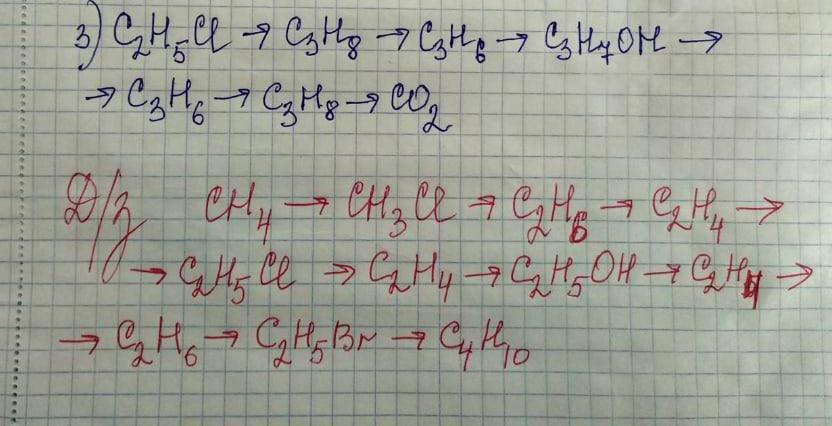 3) C₂H₅Cl → C₃H₈ → C₃H₆ → C₃H₇OH →
→ C₃H₆ → C₃H₈ → CO₂
Д/з CH₄ → CH₃Cl → C₂H₆ → C₂H₄ →
→ C₂H₅Cl → C₂H₄ → C₂H₅OH → C₂H₄ →
→ C₂H₆ → C₂H₅Br → C₄H₁₀